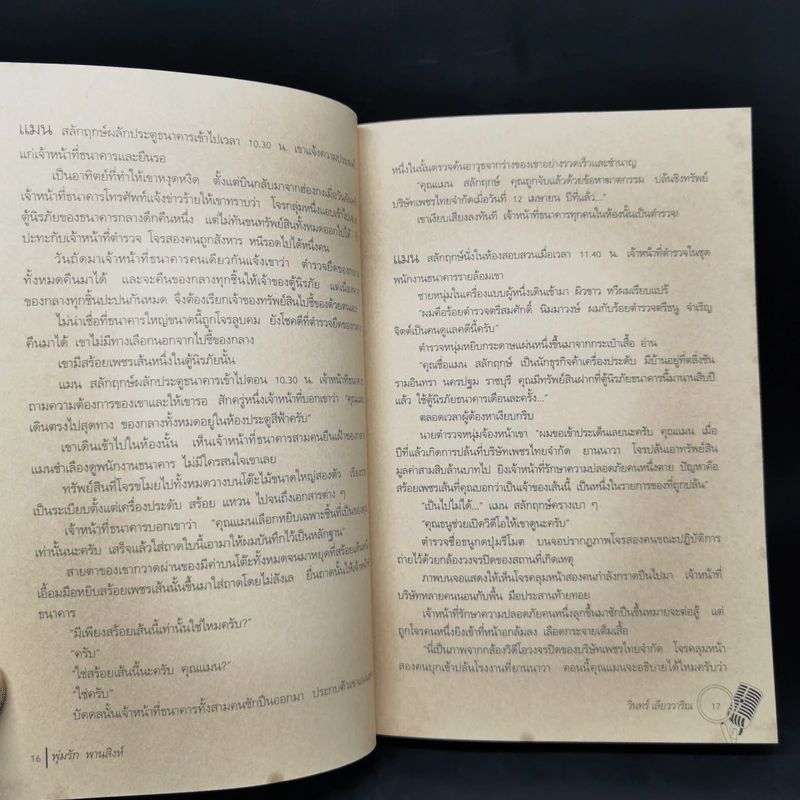 แมน สลักฤกษ์ผลักประตูธนาคารเข้าไปเวลา 10.30 น. เขาแจ้งความประสงค์
แก่เจ้าหน้าที่ธนาคารและยืนรอ
เป็นอาทิตย์ที่ทำให้เขาหงุดหงิด ตั้งแต่บินกลับมาจากฮ่องกงเมื่อวันจันทร์
เจ้าหน้าที่ธนาคารโทรศัพท์แจ้งข่าวร้ายให้เขาทราบว่า โจรกลุ่มหนึ่งแอบเข้าไป
ตู้นิรภัยของธนาคารกลางดึกคืนหนึ่ง แต่ไม่ทันขนทรัพย์สินทั้งหมดออกไปได้ ก็
ปะทะกับเจ้าหน้าที่ตำรวจ โจรสองคนถูกสังหาร หนีรอดไปได้หนึ่งคน
วันถัดมาเจ้าหน้าที่ธนาคารคนเดียวกันแจ้งเขาว่า ตำรวจยึดของกลาง
ทั้งหมดคืนมาได้ และจะคืนของกลางทุกชิ้นให้เจ้าของตู้นิรภัย แต่เนื่องจาก
ของกลางทุกชิ้นปะปนกันหมด จึงต้องเรียกเจ้าของทรัพย์สินไปชี้ของด้วยตนเอง
ไม่น่าเชื่อที่ธนาคารใหญ่ขนาดนี้ถูกโจรลูบคม ยังโชคดีที่ตำรวจยึดของ
คืนมาได้ เขาไม่มีทางเลือกนอกจากไปชี้ของกลาง
เขามีสร้อยเพชรเส้นหนึ่งในตู้นิรภัยนั้น
แมน สลักฤกษ์ผลักประตูธนาคารเข้าไปตอน 10.30 น. เจ้าหน้าที่ธนาคาร
ถามความต้องการของเขาและให้เขารอ สักครู่หนึ่งเจ้าหน้าที่บอกเขาว่า "คุณแมน
เดินตรงไปสุดทาง ของกลางทั้งหมดอยู่ในห้องประตูสีฟ้าครับ"
เขาเดินเข้าไปในห้องนั้น เห็นเจ้าหน้าที่ธนาคารสามคนยืนเฝ้าของกลาง
แมนชำเลืองดูพนักงานธนาคาร ไม่มีใครสนใจเขาเลย
ทรัพย์สินที่โจรขโมยไปทั้งหมดวางบนโต๊ะไม้ขนาดใหญ่สองตัว เรียงราย
เป็นระเบียบตั้งแต่เครื่องประดับ สร้อย แหวน ไปจนถึงเอกสารต่าง ๆ
เจ้าหน้าที่ธนาคารบอกเขาว่า "คุณแมนเลือกหยิบเฉพาะชิ้นที่เป็นของคุณ
เท่านั้นนะครับ เสร็จแล้วใส่ถาดใบนี้เอามาให้ผมบันทึกไว้เป็นหลักฐาน"
สายตาของเขากวาดผ่านของมีค่าบนโต๊ะทั้งหมดจนมาหยุดที่สร้อยเส้นหนึ่ง
เอื้อมมือหยิบสร้อยเพชรเส้นนั้นขึ้นมาใส่ถาดโดยไม่ลังเล ยื่นถาดนั้นให้เจ้าหน้าที่
ธนาคาร
"มีเพียงสร้อยเส้นนี้เท่านั้นใช่ไหมครับ?"
"ครับ"
"ใช่สร้อยเส้นนี้นะครับ คุณแมน?"
"ใช่ครับ"
บัดดลนั้นเจ้าหน้าที่ธนาคารทั้งสามคนชักปืนออกมา ประกบตัวเขา
16 พุ่มรัก พานสิงห์
หนึ่งในนั้นตรวจค้นอาวุธจากร่างของเขาอย่างรวดเร็วและชำนาญ
"คุณแมน สลักฤกษ์ คุณถูกจับแล้วด้วยข้อหาฆาตกรรม ปล้นชิงทรัพย์
บริษัทเพชรไทยจำกัดเมื่อวันที่ 12 เมษายน ปีที่แล้ว..."
เขาเงียบเสียงลงทันที เจ้าหน้าที่ธนาคารทุกคนในห้องนั้นเป็นตำรวจ!
แมน สลักฤกษ์นั่งในห้องสอบสวนเมื่อเวลา 11.40 น. เจ้าหน้าที่ตำรวจในชุด
พนักงานธนาคารรายล้อมเขา
ชายหนุ่มในเครื่องแบบผู้หนึ่งเดินเข้ามา ผิวขาว หวีผมเรียบแปร้
"ผมคือร้อยตำรวจตรีสมศักดิ์ นิมมาวงษ์ ผมกับร้อยตำรวจตรีธนู จำเริญ
จิตต์เป็นคนดูแลคดีนี้ครับ"
ตำรวจหนุ่มหยิบกระดาษแผ่นหนึ่งขึ้นมาจากกระเป๋าเสื้อ อ่าน
"คุณชื่อแมน สลักฤกษ์ เป็นนักธุรกิจค้าเครื่องประดับ มีบ้านอยู่ที่ตลิ่งชัน
รามอินทรา นครปฐม ราชบุรี คุณมีทรัพย์สินฝากที่ตู้นิรภัยธนาคารนี้มานานสิบปี
แล้ว ใช้ตู้นิรภัยธนาคารเดือนละครั้ง..."
ตลอดเวลาผู้ต้องหาเงียบกริบ
นายตำรวจหนุ่มจ้องหน้าเขา "ผมขอเข้าประเด็นเลยนะครับ คุณแมน เมื่อ
ปีที่แล้วเกิดการปล้นที่บริษัทเพชรไทยจำกัด ยานนาวา โจรปล้นเอาทรัพย์สิน
มูลค่าสามสิบล้านบาทไป ยิงเจ้าหน้าที่รักษาความปลอดภัยคนหนึ่งตาย ปัญหาคือ
สร้อยเพชรเส้นนี้ที่คุณบอกว่าเป็นเจ้าของเส้นนี้ เป็นหนึ่งในรายการของที่ถูกปล้น"
"เป็นไปไม่ได้..." แมน สลักฤกษ์ครางเบา ๆ
"คุณธนูช่วยเปิดวิดีโอให้เขาดูนะครับ"
ตำรวจชื่อธนูกดปุ่มรีโมต บนจอปรากฏภาพโจรสองคนขณะปฏิบัติการ
ถ่ายไว้ด้วยกล้องวงจรปิดของสถานที่เกิดเหตุ
ภาพบนจอแสดงให้เห็นโจรคลุมหน้าสองคนกำลังกราดปืนไปมา เจ้าหน้าที่
บริษัทหลายคนนอนกับพื้น มือประสานท้ายทอย
เจ้าหน้าที่รักษาความปลอดภัยคนหนึ่งลุกขึ้นมาชักปืนขึ้นหมายจะต่อสู้ แต่
ถูกโจรคนหนึ่งยิงเข้าที่หน้าอกล้มลง เลือดกระจายเต็มเสื้อ
"นี่เป็นภาพจากกล้องวิดีโอวงจรปิดของบริษัทเพชรไทยจำกัด โจรคลุมหน้า
สองคนบุกเข้าปล้นโรงงานที่ยานนาวา ตอนนี้คุณแมนจะอธิบายได้ไหมครับว่า
วินทร์ เลียววาริณ 17